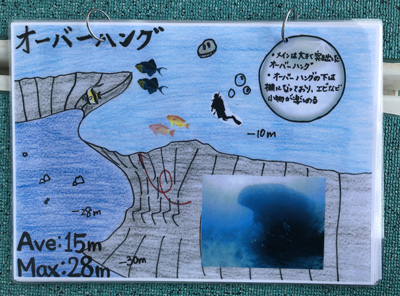 オーバーハング
・メインは大きく突き出た
オーバーハング
・オーバーハングの下は
棚になっており、エビなど
小物が楽しめる
-10m
-28m
-30m
Ave:15m
Max:28m